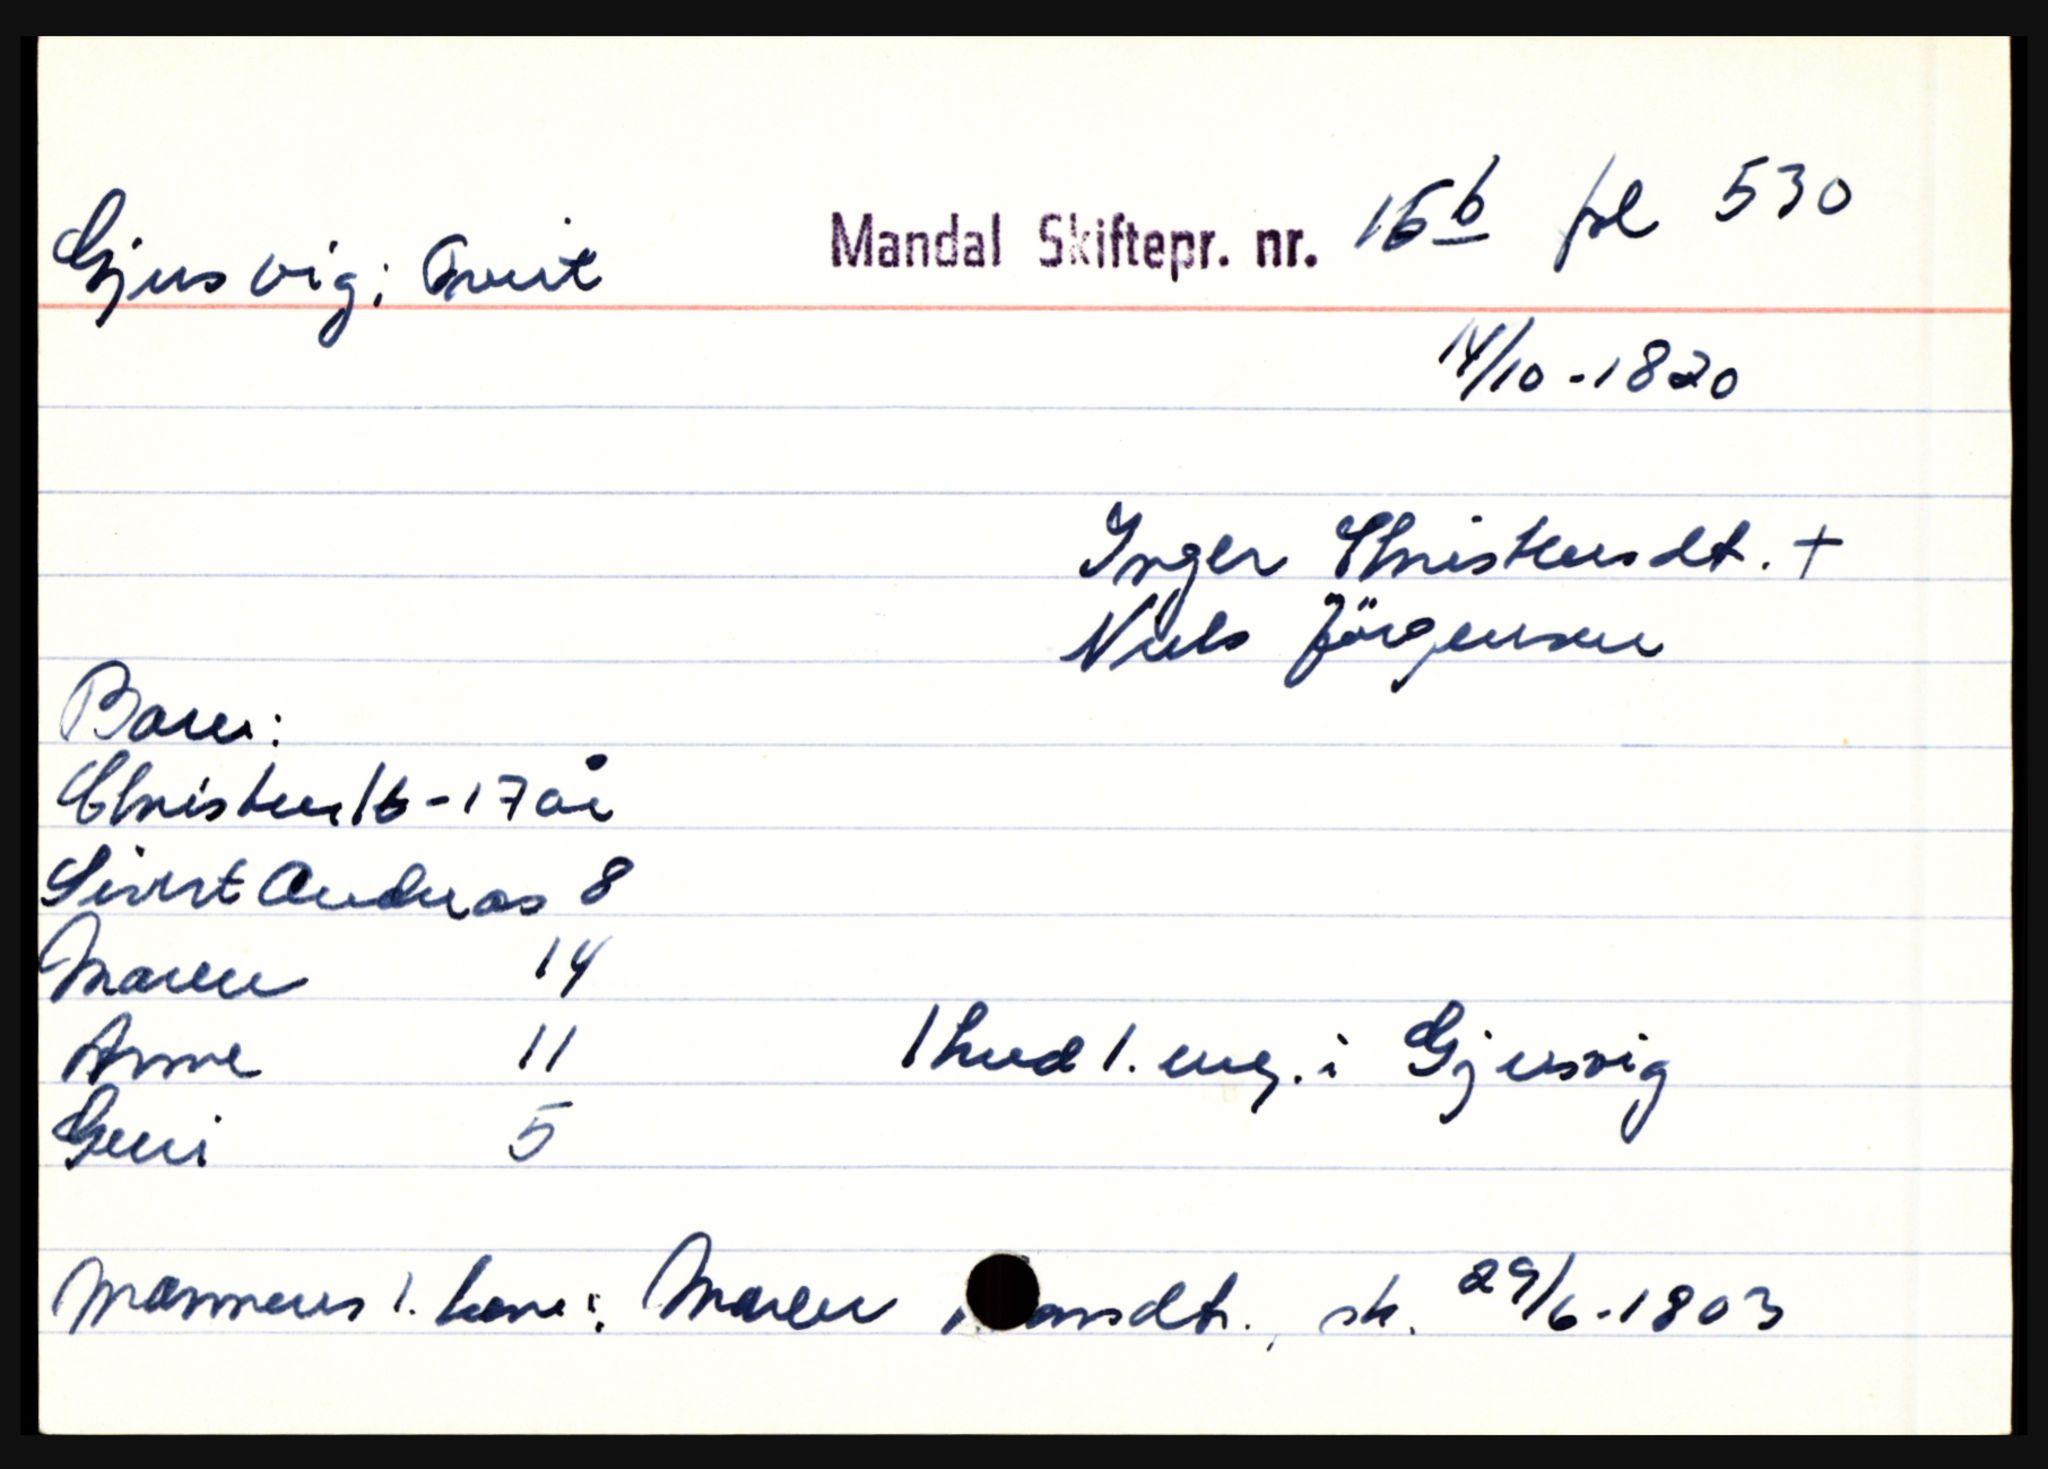 Gjusvig; Tveit
Mandal Skiftepr. nr. 15b fol 530
14/10-1820
Inger Christensdt. +
Niels Jörgensen
Barn:
Christen 16-17 år
Sivert Andreas 8
Maren 14
Anne 11
1 hud 1. eng. i Gjusvig
Guri 5
Mannens 1. kone: Maren sdt., sk. 29/6-1803